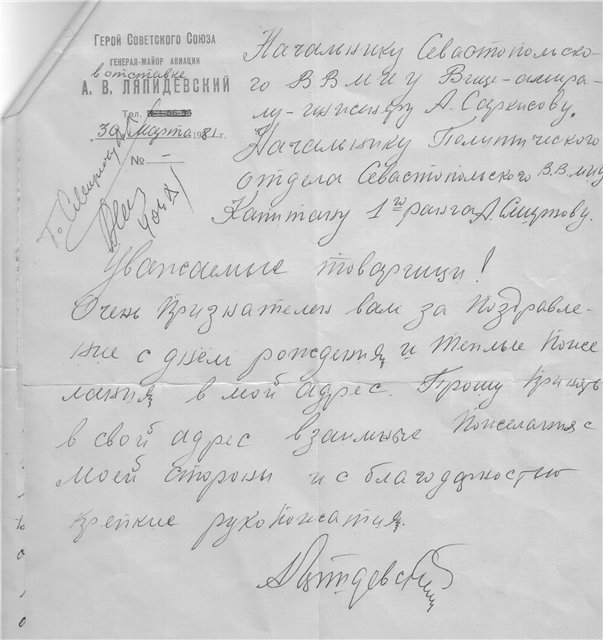 ГЕРОЙ СОВЕТСКОГО СОЮЗА
ГЕНЕРАЛ-МАЙОР АВИАЦИИ
в отставке
А. В. ЛЯПИДЕВСКИЙ
Тел.
30 Марта 1981 г.
№ —
Начальнику Севастопольско-
го ВВМИУ Вице-адмира-
лу-инженеру А. Саркисову.
Начальнику Политического
отдела Севастопольского ВВМИУ
Капитану 1го ранга А. Смуртову.
Уважаемые товарищи!
Очень признателен вам за поздравле-
ние с днем рождения и теплые поже
лания в мой адрес. Прошу принять
в свой адрес взаимные пожелания с
моей стороны и с благодарностью
крепкие рукопожатия.